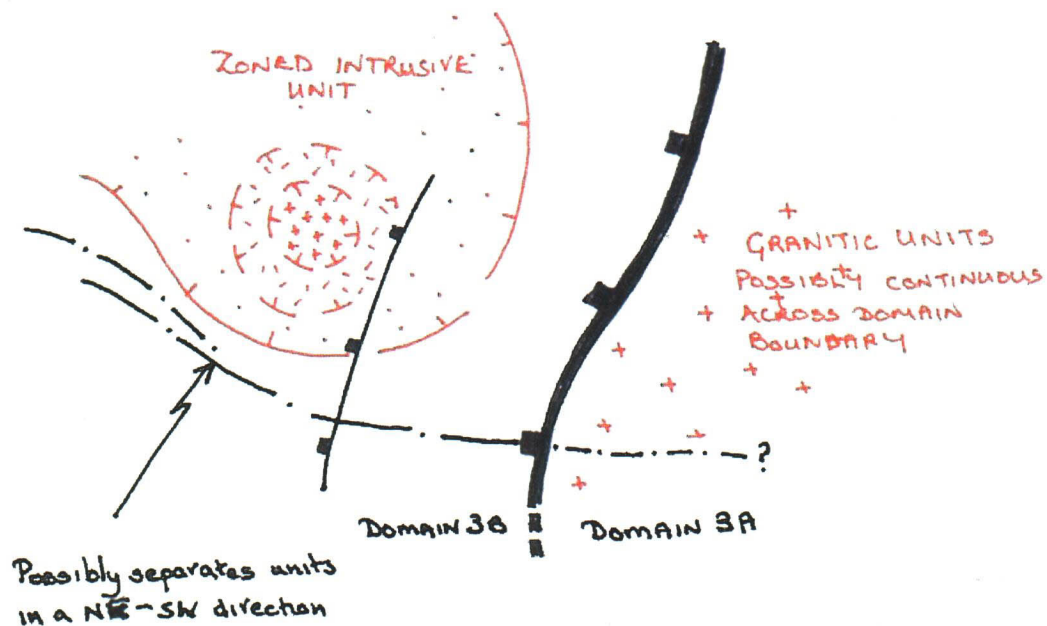 ZONED INTRUSIVE
UNIT
GRANITIC UNITS
POSSIBLY CONTINUOUS
ACROSS DOMAIN
BOUNDARY
?
DOMAIN 3B
DOMAIN 3A
Possibly separates units
in a NE-SW direction